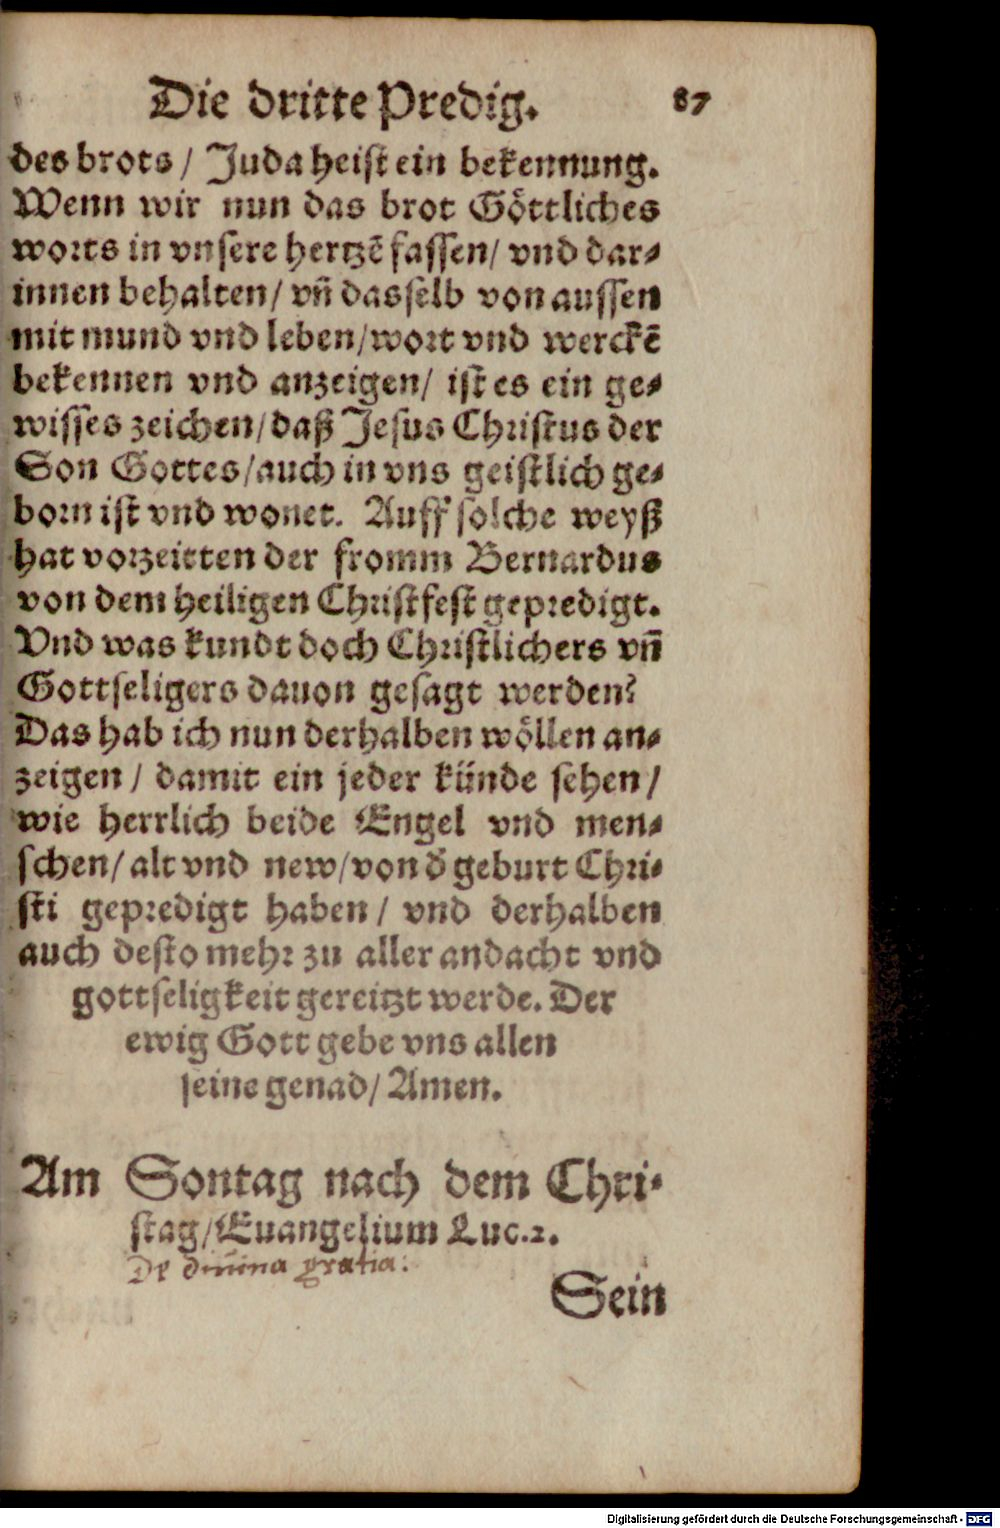 Die dritte Predig. 87
des brots / Juda heist ein bekennung.
Wenn wir nun das brot Göttliches
worts in vnsere hertzē fassen / vnd dar⸗
innen behalten / vñ dasselb von aussen
mit mund vnd leben / wort vnd werckē
bekennen vnd anzeigen / ist es ein ge⸗
wisses zeichen / daß Jesus Christus der
Son Gottes / auch in vns geistlich ge⸗
born ist vnd wonet. Auff solche weyß
hat vorzeitten der fromm Bernardus
von dem heiligen Christfest gepredigt.
Vnd was kundt doch Christlichers vñ
Gottseligers dauon gesagt werden?
Das hab ich nun derhalben wöllen an⸗
zeigen / damit ein jeder künde sehen /
wie herrlich beide Engel vnd men⸗
schen / alt vnd new / von d̕ geburt Chri⸗
sti gepredigt haben / vnd derhalben
auch desto mehr zu aller andacht vnd
gottseligkeit gereitzt werde. Der
ewig Gott gebe vns allen
seine genad / Amen.
Am Sontag nach dem Chri⸗
stag / Euangelium Luc. 2.
De diuina gratia:
Sein
Digitalisierung gefördert durch die Deutsche Forschungsgemeinschaft - DFG